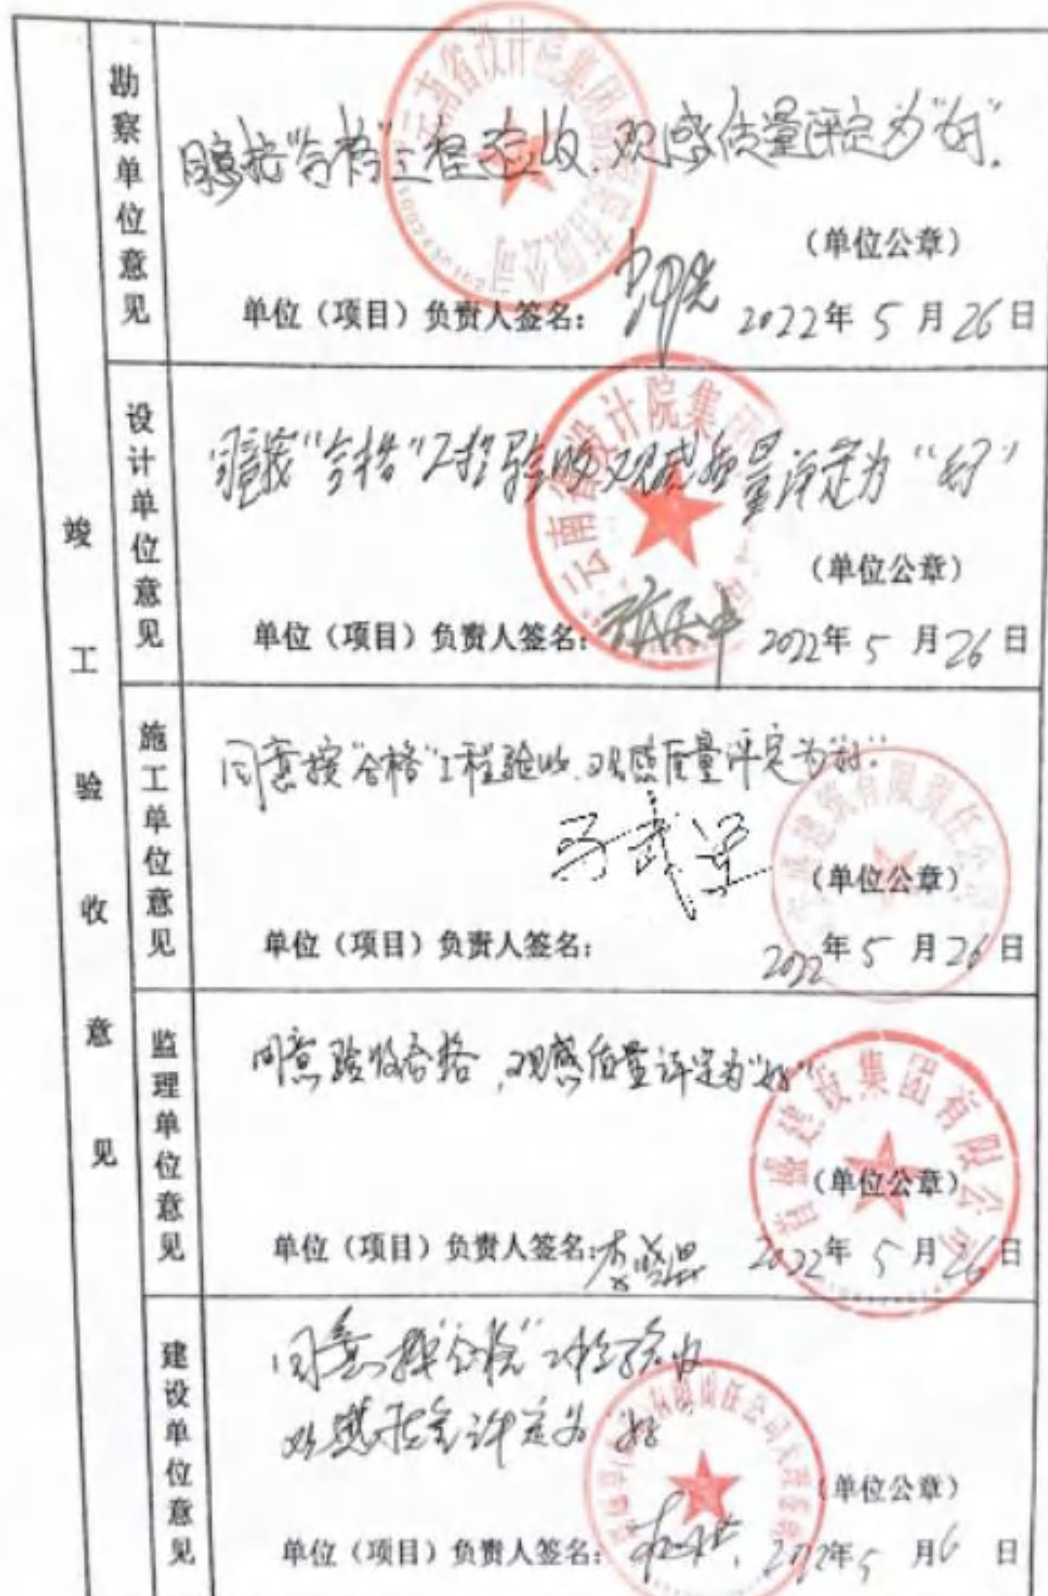 竣工验收意见
勘察单位意见
同意按“合格”工程验收.观感质量评定为“好”.
(单位公章)
单位(项目)负责人签名:
2022年5月26日
设计单位意见
云南省设计院集团
同意按“合格”工程验收 观感质量评定为“好”
(单位公章)
单位(项目)负责人签名:
2022年5月26日
施工单位意见
同意按“合格”工程验收.观感质量评定为“好”.
建筑有限责任公司
(单位公章)
单位(项目)负责人签名:
2022年5月26日
监理单位意见
同意验收合格,观感质量评定为“好”
建设集团有限公司
(单位公章)
单位(项目)负责人签名:
2022年5月26日
建设单位意见
同意按“合格”工程验收
观感质量评定为 好
(单位公章)
单位(项目)负责人签名:
2022年5月6日